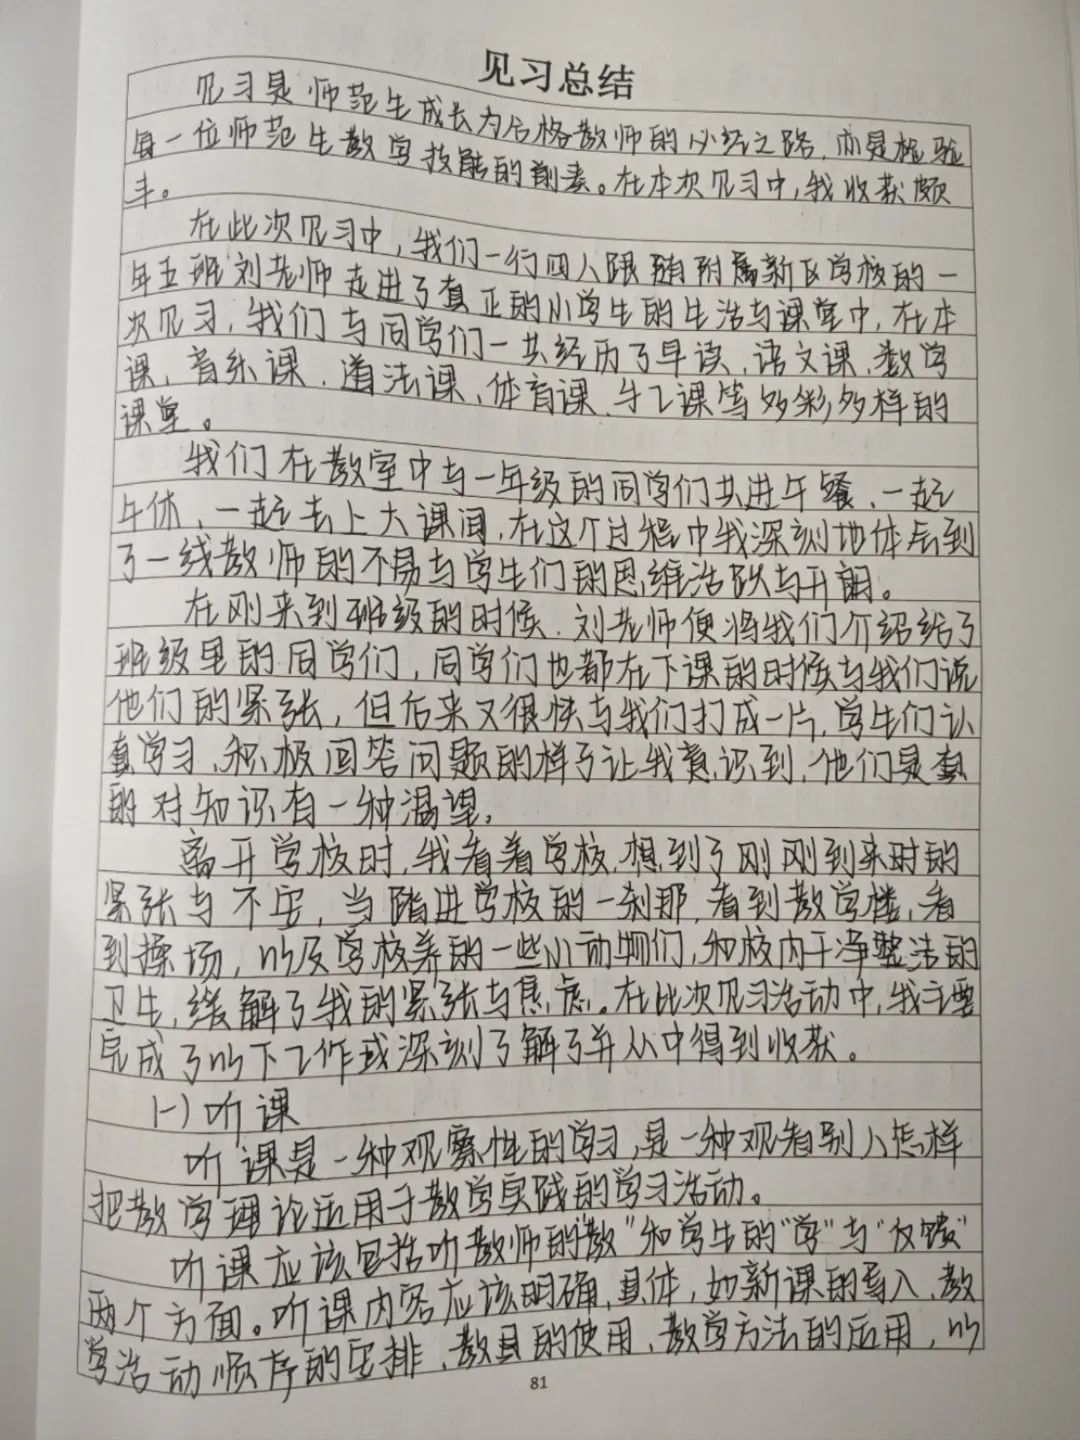 见习总结
见习是师范生成长为合格教师的必经之路，亦是检验
每一位师范生教学技能的前奏。在本次见习中，我收获颇
丰。
在此次见习中，我们一行四人跟随附属新区学校的一
年五班刘老师走进了真正的小学生的生活与课堂中，在本
次见习，我们与同学们一共经历了早读、语文课、数学
课、音乐课、道法课、体育课、手工课等多彩多样的
课堂。
我们在教室中与一年级的同学们共进午餐、一起
午休、一起去上大课间，在这个过程中我深刻地体会到
了一线教师的不易与学生们的思维活跃与开朗。
在刚来到班级的时候，刘老师便将我们介绍给了
班级里的同学们，同学们也都在下课的时候与我们说
他们的紧张，但后来又很快与我们打成一片，学生们认
真学习、积极回答问题的样子让我意识到，他们是真
的对知识有一种渴望，
离开学校时，我看着学校，想到了刚刚到来时的
紧张与不安，当踏进学校的一刹那，看到教学楼，看
到操场，以及学校养的一些小动物们，和校内干净整洁的
卫生，缓解了我的紧张与焦虑。在此次见习活动中，我主要
完成了以下工作或深刻了解了并从中得到收获。
(一)听课
听课是一种观察性的学习，是一种观看别人怎样
把教学理论运用于教学实践的学习活动。
听课应该包括听教师的"教"和学生的"学"与"反馈"
两个方面。听课内容应该明确、具体，如新课的导入、教
学活动顺序的安排、教具的使用、教学方法的运用，以
81